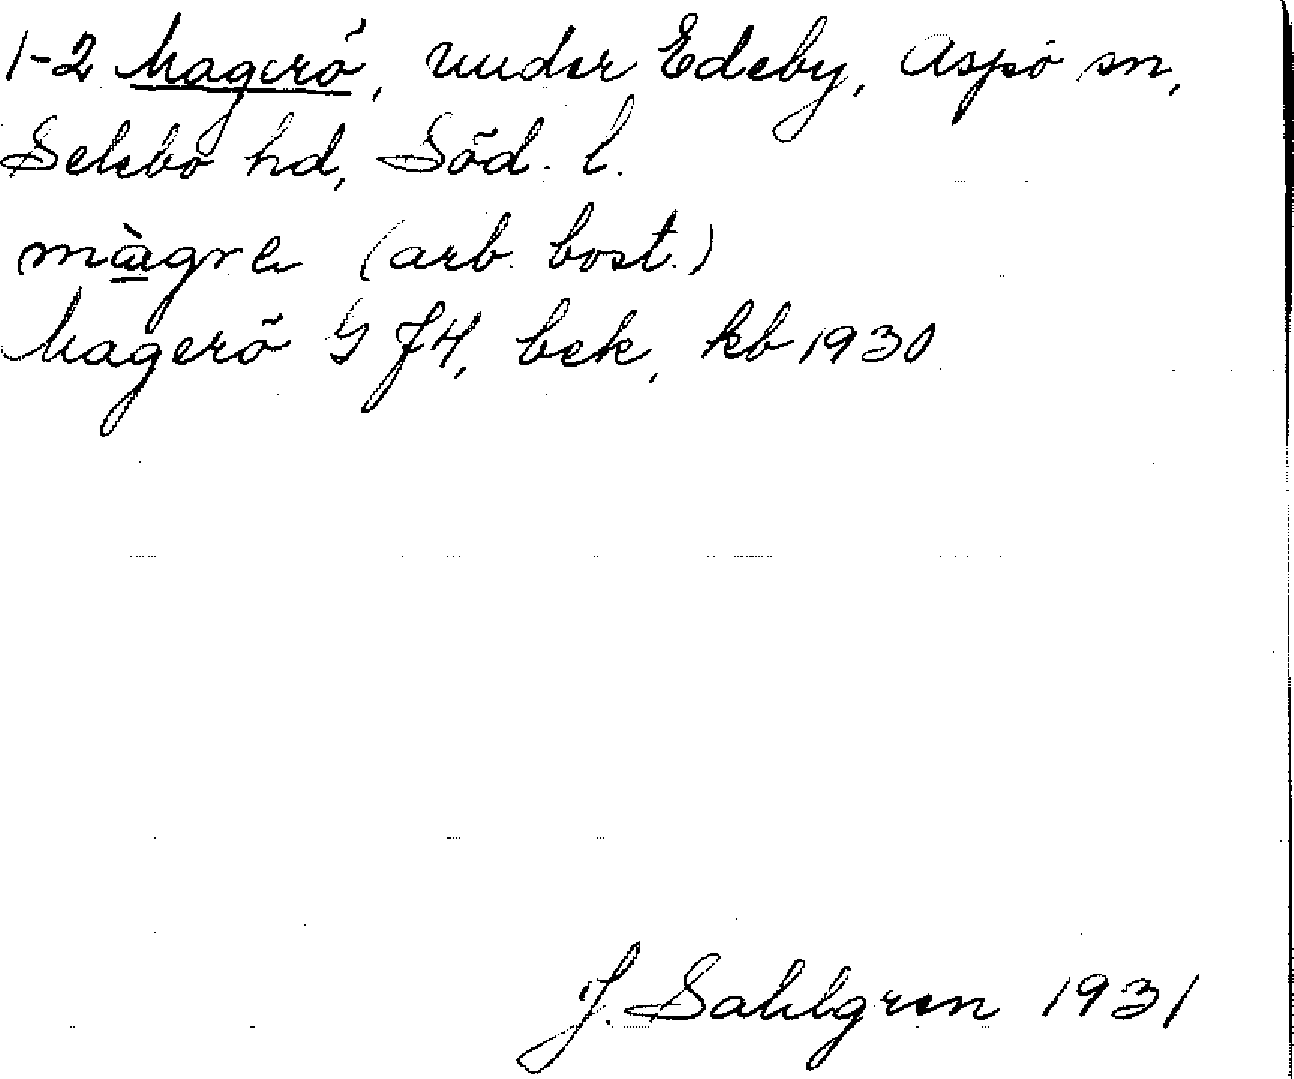 1-2 Magerö, under Edeby, Aspö sn,
Selebo hd, Söd. l.
(arb. bost.)
Magerö G J4, bek, kb 1930
J. Sahlgren 1931